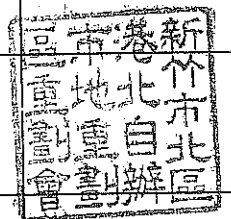 新竹市北區
港北自辦
市地重劃
區重劃會